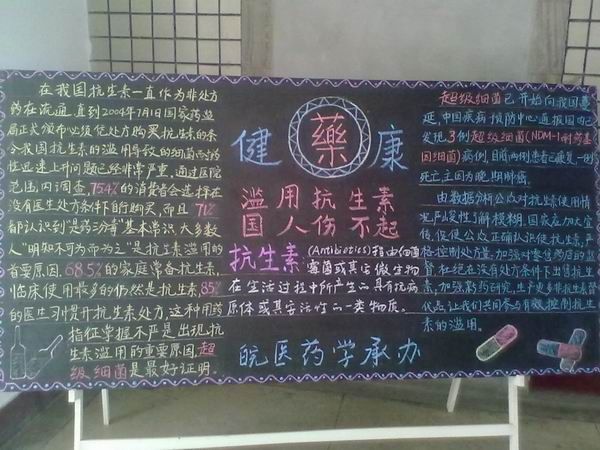 在我国抗生素一直作为非处方
药在流通,直到2004年7月1日国家药监
局正式颁布必须凭处方购买抗生素的条
令。我国抗生素的滥用导致的细菌耐药
性迅速上升问题已经非常严重,通过医院
范围内调查,75.4%的消费者会选择在
没有医生处方条件下自行购买,而且71%
都认识到"是药三分毒"基本常识。大多数
人"明知不可为而为之"是抗生素滥用的
首要原因。68.5%的家庭常备抗生素,
临床使用最多的仍然是抗生素,85%
的医生习惯开抗生素处方,这种用药
指征掌握不严是出现抗
生素滥用的重要原因,超
级细菌是最好证明。
健 藥 康
滥用抗生素
国人伤不起
抗生素:(Antibiotics)指由细菌
霉菌或其它微生物
在生活过程中所产生的具有抗病
原体或其它活性的一类物质。
皖医药学承办
超级细菌已开始向我国蔓
延,中国疾病预防中心通报国内已
发现3例超级细菌(NDM-1耐药基
因细菌)病例,目前两例患者已康复,一例
死亡主因为晚期肺癌。
由数据分析公众对抗生素使用情
况严峻性了解模糊,国家应加大宣
传,促使公众正确认识使抗生素,严
格控制处方量,加强对零售药店的监
督,杜绝在没有处方条件下出售抗生
素,加强制药研究,生产更多非抗生素替
代品,让我们共同参与有效控制抗生
素的滥用。